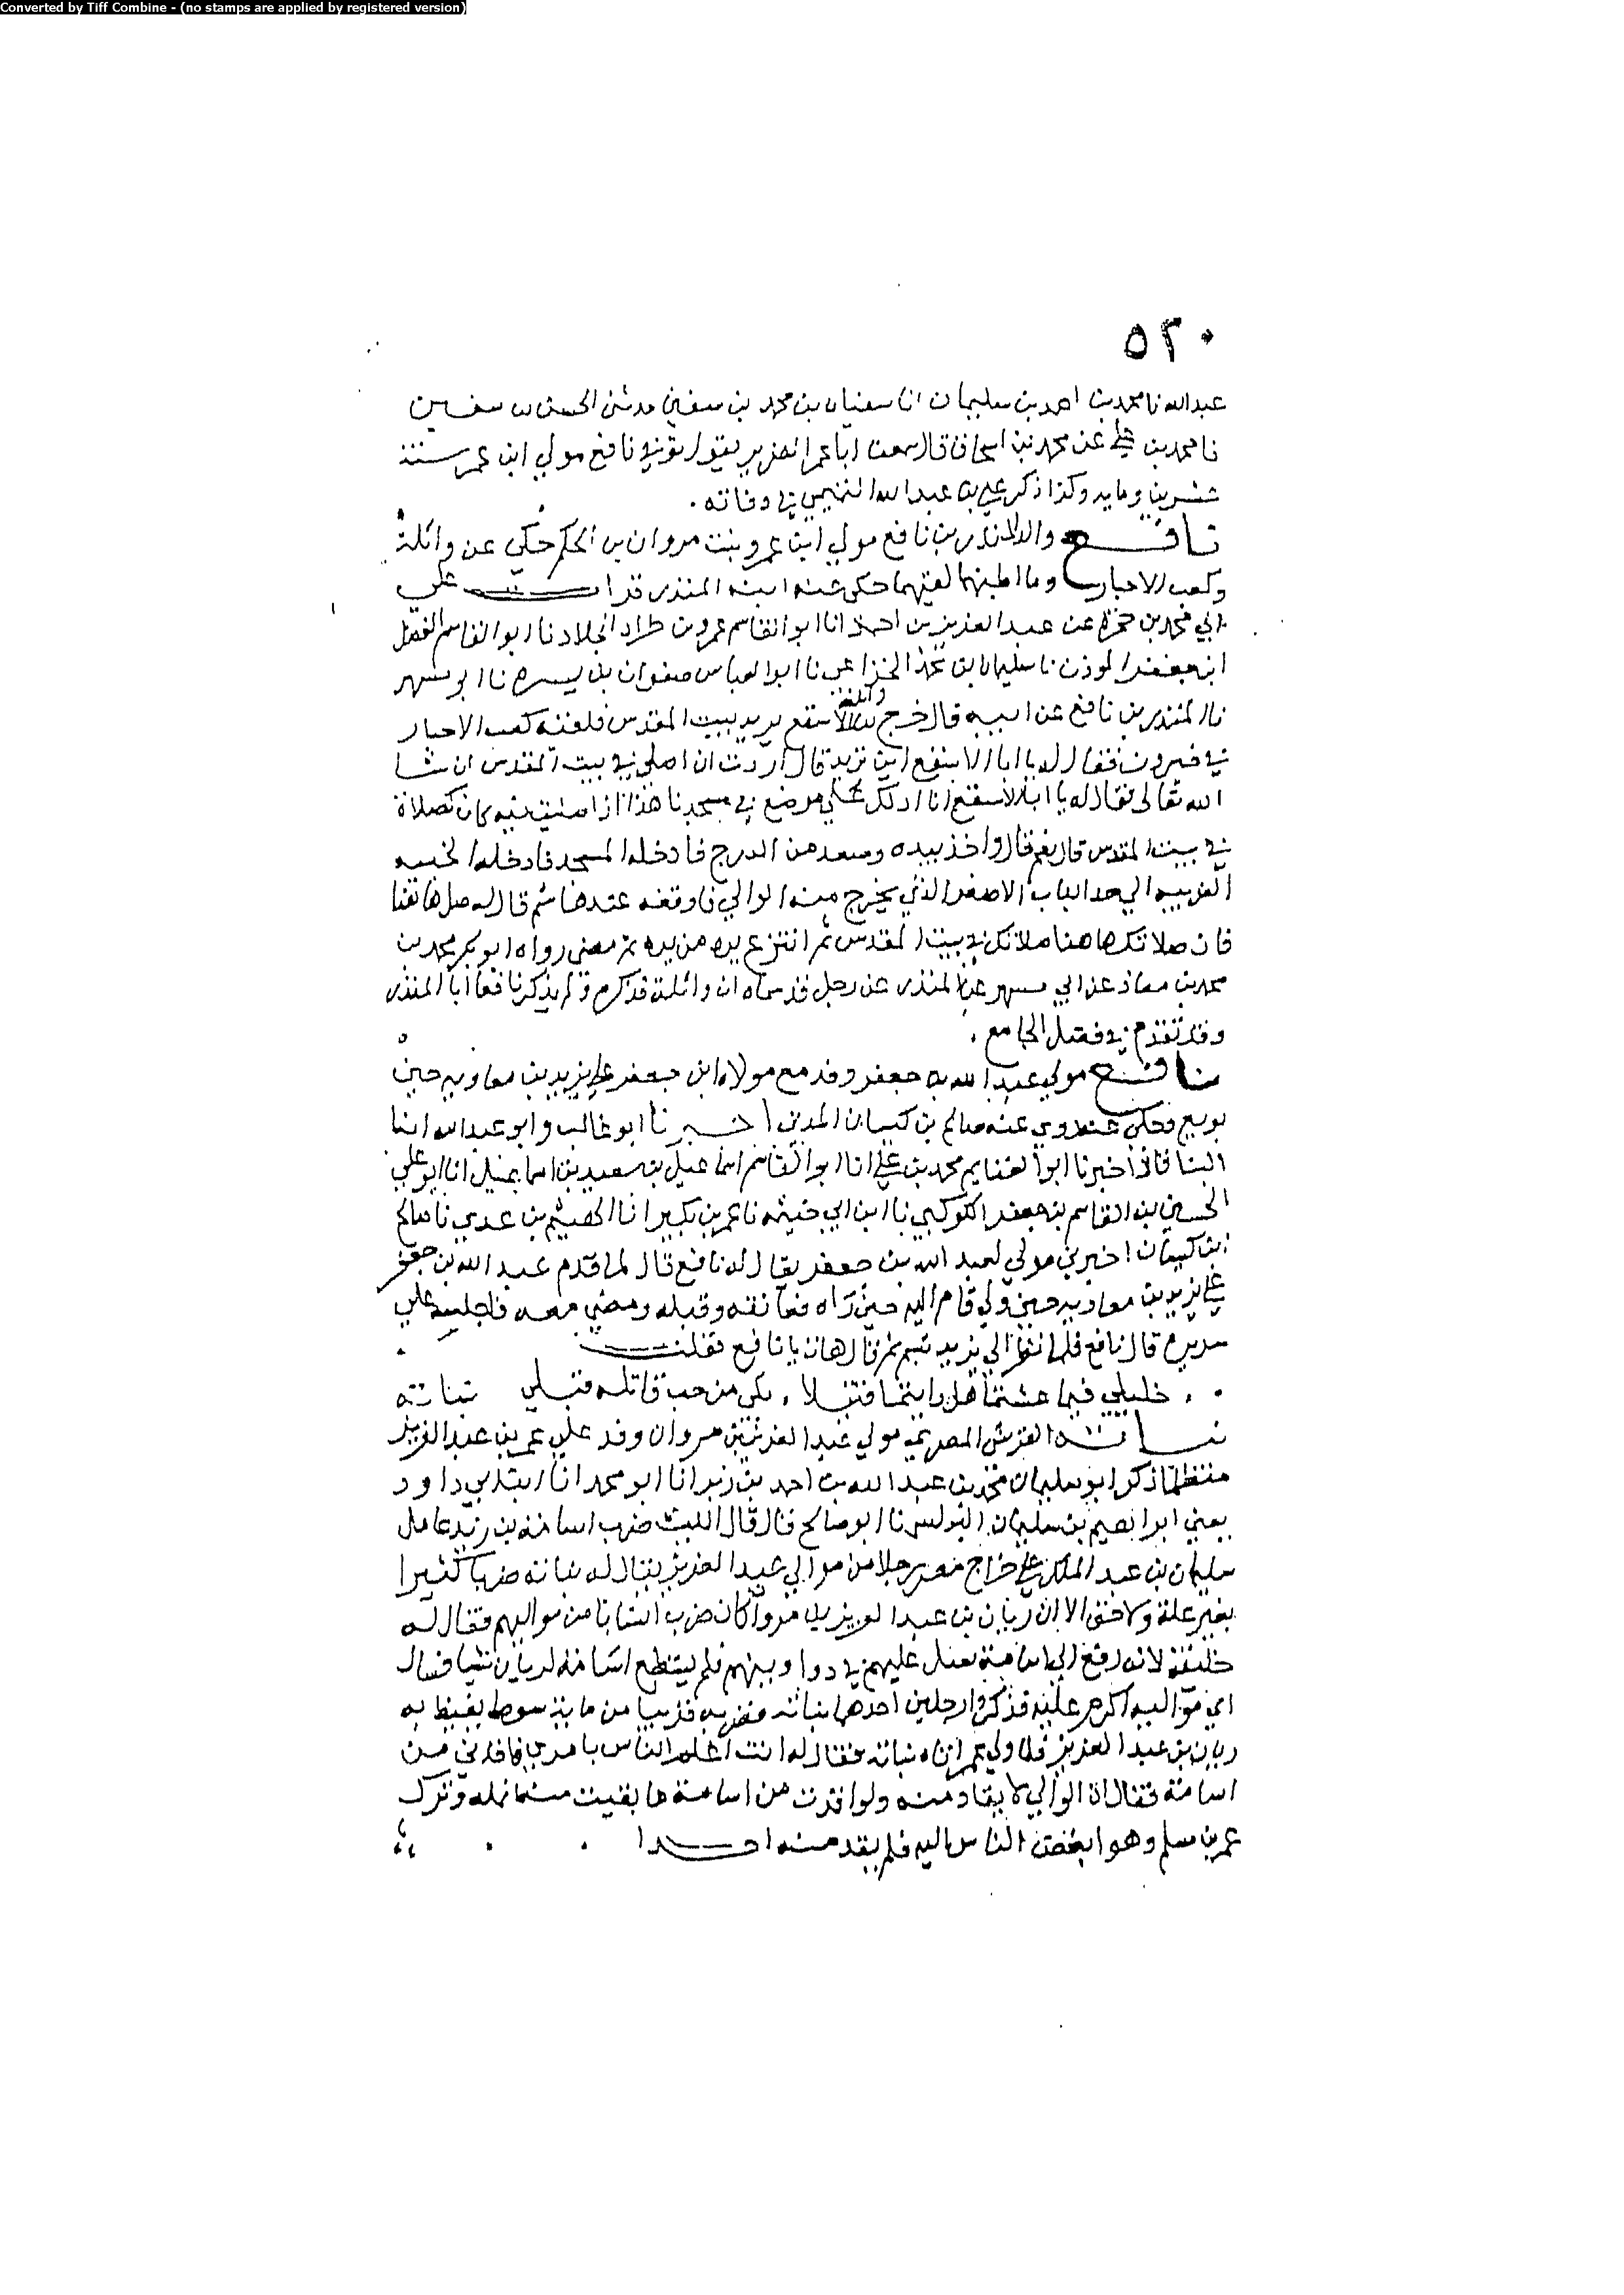 Converted by Tiff Combine - (no stamps are applied by registered version)
٥٢٠
عبد الله نا محمد بن احمد بن سليمان انا سفيان بن محمد بن سفين حدثني الحسن بن سفين
نا محمد بن علي عن محمد بن اسحاق قال سمعت ابا عمر الضرير يقول توفي نافع مولي ابن عمر سنة
عشرين ومايه وكذا ذكر علي بن عبد الله التميمي في وفاته
نافع والد المنذر بن نافع مولي ابن عمرو بنت مروان بن الحكم حكي عن واثلة
وكعب الاحبار وما اظنه لقيهما حكي عنه ابنه المنذر قرات علي
ابي محمد بن حمزة عن عبد العزيز بن احمد انا ابو القاسم عمرو بن طراد الجلاد نا ابو القاسم الفضل
ابن جعفر الموذن نا سليمان بن محمد الخزاعي نا ابو العباس صفوان بن يسره نا ابو مسهر
نا المنذر بن نافع عن ابيه قال خرج واثلة بن الاسقع يريد بيت المقدس فلقيه كعب الاحبار
في جيرون فقال له يا ابا الاسقع اين تريد قال اردت ان اصلي في بيت المقدس ان شا
الله تعالى فقال له يا ابا الاسقع انا ادلك علي موضع في مسجدنا هذا اذا صليت فيه كان كصلاة
في بيت المقدس قال نعم قال واخذ بيده وصعد من الدرج فادخله المسجد فادخله الحنيه
الغربيه الي حد الباب الاصغر الذي يخرج منه الوالي فاوقفه عندها ثم قال له صل هاهنا
فان صلاتك هاهنا صلاتك في بيت المقدس ثم انتزع يده من يده ثم مضي رواه ابو بكر محمد بن
محمد بن معاذ عن ابي مسهر عن المنذر عن رجل قد سماه ان واثلة فذكره ولم يذكر نافعا ابا المنذر
وقد تقدم في فضل الجامع
نافع مولي عبد الله بن جعفر وفد مع مولاه ابن جعفر علي يزيد بن معاويه حين
بويع فحكي عنه روي عنه صالح بن كيسان المدني اخبرنا ابو غالب وابو عبد الله ابنا
البنا قالا اخبرنا ابو الغنايم محمد بن علي انا ابو القاسم اسماعيل بن سعيد بن اسماعيل انا ابو علي
الحسين بن القاسم بن جعفر الكوكبي نا ابن ابي خيثمه نا عمر بن بكير انا الهيثم بن عدي نا صالح
ابن كيسان اخبرني مولي لعبد الله بن جعفر يقال له نافع قال لما قدم عبد الله بن جعفر
علي يزيد بن معاويه حين ولي قام اليه حين راه فعانقه وقبله ومضي معه فاجلسه علي
سريره قال نافع فلما نظر الي يزيد تبسم ثم قال هات يا نافع فقلت
خليلي فيما عشتما هل رايتما قتيلا بكي من حب قاتله قبلي نباتة
نباتة القرشي المصري مولي عبد العزيز بن مروان وفد علي عمر بن عبد العزيز
متظلما ذكر ابو سليمان محمد بن عبد الله بن احمد بن زبر انا ابو محمد انا ابن ابي داود
يعني ابراهيم بن سليمان البرلسي نا ابو صالح قال قال الليث ضرب اسامة بن زيد عامل
سليمان بن عبد الملك علي خراج مصر رجلا من موالي عبد العزيز يقال له نباته ضربا كثيرا
بغير علة ولا حق الا ان ريان بن عبد العزيز بن مروان كان ضرب انسانا من مواليهم فقال له
خليفة لانه رفع الي اسامة يعمل عليهم في دواوينهم فلم يستطع اسامة لريان شيا فسال
اي مواليه اكرم عليه فذكروا رجلين احدهما نباتة فضربه قريبا من ماية سوط يغيظ به
ريان بن عبد العزيز فلما ولي عمر اتاه نباتة فقال له انت اعلم الناس بامري فاقدني من
اسامة فقال ان الوالي لا يقاد منه ولو اقدت من اسامة ما بقيت منه انمله وترك
عمر بن مسلم وهو ابغض الناس اليه فلم يقد منه احدا